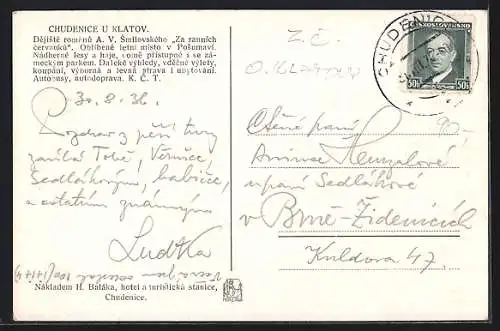 CHUDENICE U KLATOV.
Dějiště románů A. V. Šmilovského „Za ranních
červánků“. Oblíbené letní místo v Pošumaví.
Nádherné lesy a háje, volně přístupné i se zá-
meckým parkem. Daleké výhledy, vděčné výlety,
koupání, výborná a levná strava i ubytování.
Autobusy, autodoprava. K. Č. T.
30. 8. 36.
Pozdrav z pěší túry
zasílá Tobě, Věrušce,
Sedlákovým, babičce,
a ostatním známým
Luďka
Nákladem H. Baťáka, hotel a turistická stanice,
Chudenice.
Z. Č.
CHUDENICE
ČESKOSLOVENSKO
50h 50h
Ctěná paní
u paní Sedlákové
v Brně-Židenicích
Kuldova 47.